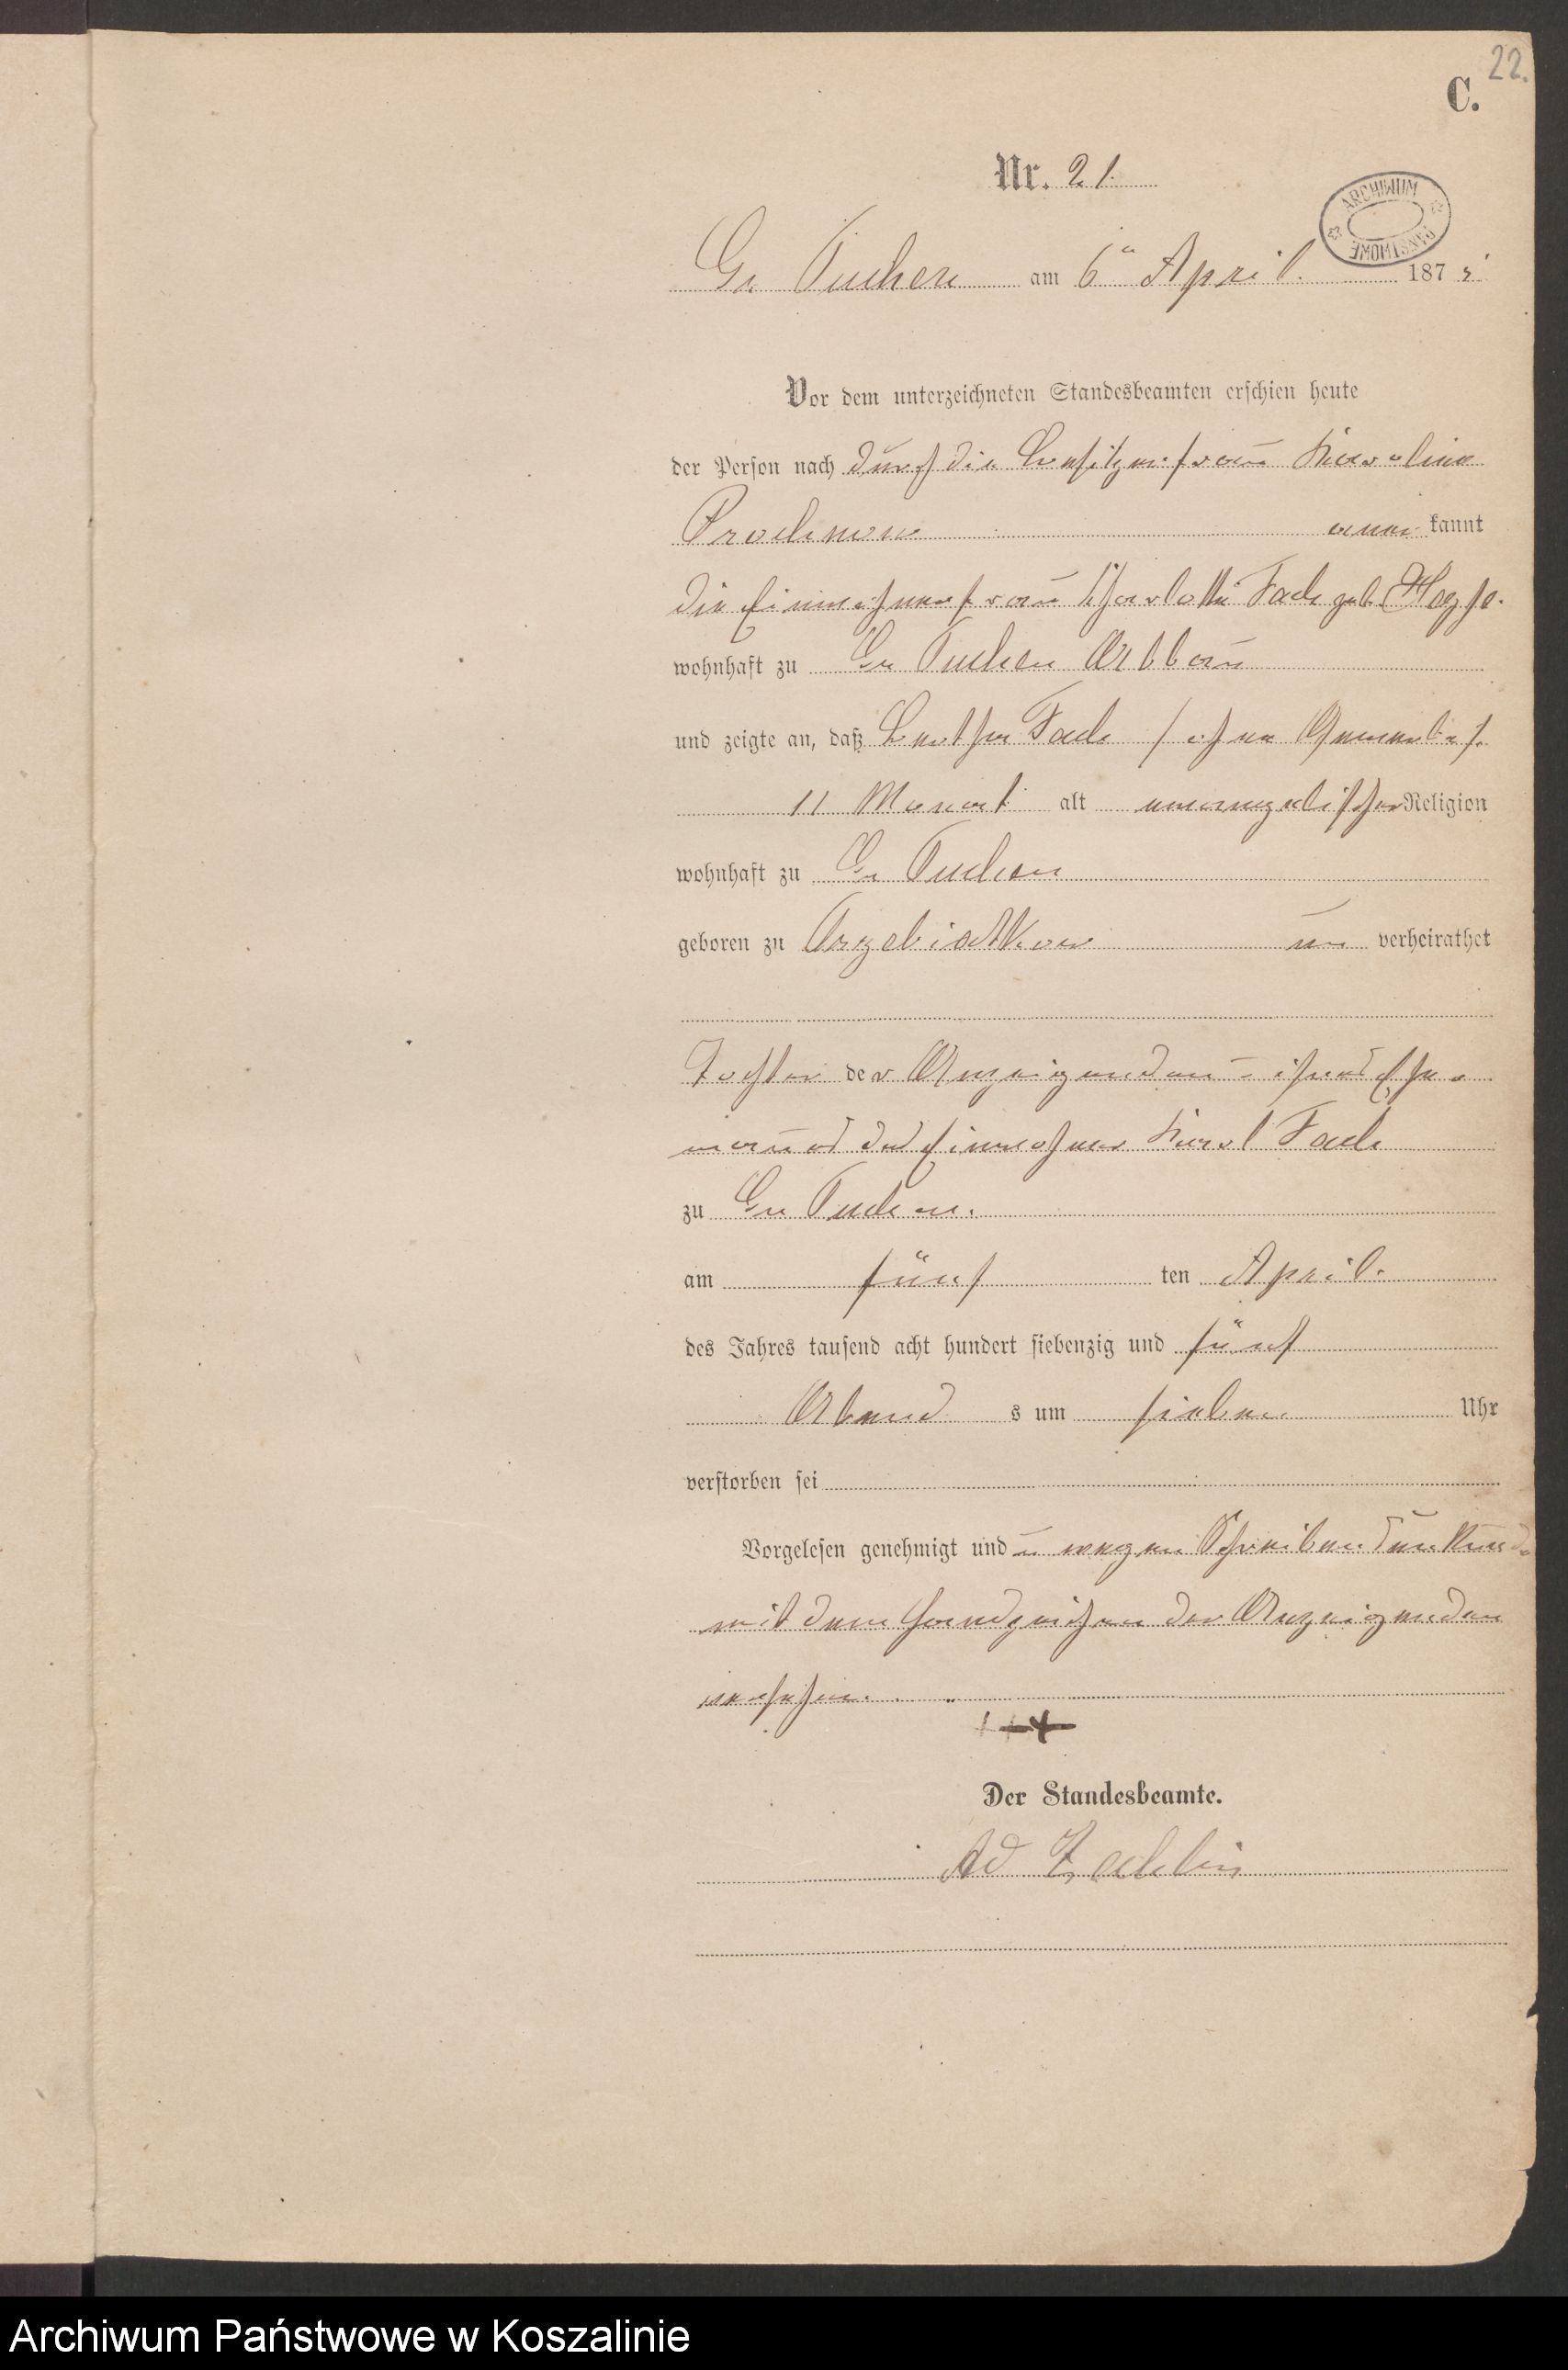 22.
C.
Nr. 21.
ARCHIWUM PAŃSTWOWE
Gr Tuchen am 6ᵗ April 1875
Vor dem unterzeichneten Standesbeamten erschien heute
der Person nach durch die Besitzersfrau Karoline
Prochnow aner kannt
die Einwohnerfrau Charlotte Fach geb.
wohnhaft zu Gr Tuchen Abbau
und zeigte an, daß Bertha Fach / ohne Gewerbe /
11 Monat alt evangelischer Religion
wohnhaft zu Gr Tuchen
geboren zu un verheirathet
Tochter der Anzeigenden u ihres Ehe-
manns des Einwohner Karl Fach
zu Gr Tuchen.
am fünf ten April
des Jahres tausend acht hundert siebenzig und fünf
Abend s um sieben Uhr
verstorben sei
Vorgelesen genehmigt und u wegen Schreibensunkunde
mit dem Handzeichen der Anzeigenden
versehen.
+++
Der Standesbeamte.
Ad
Archiwum Państwowe w Koszalinie